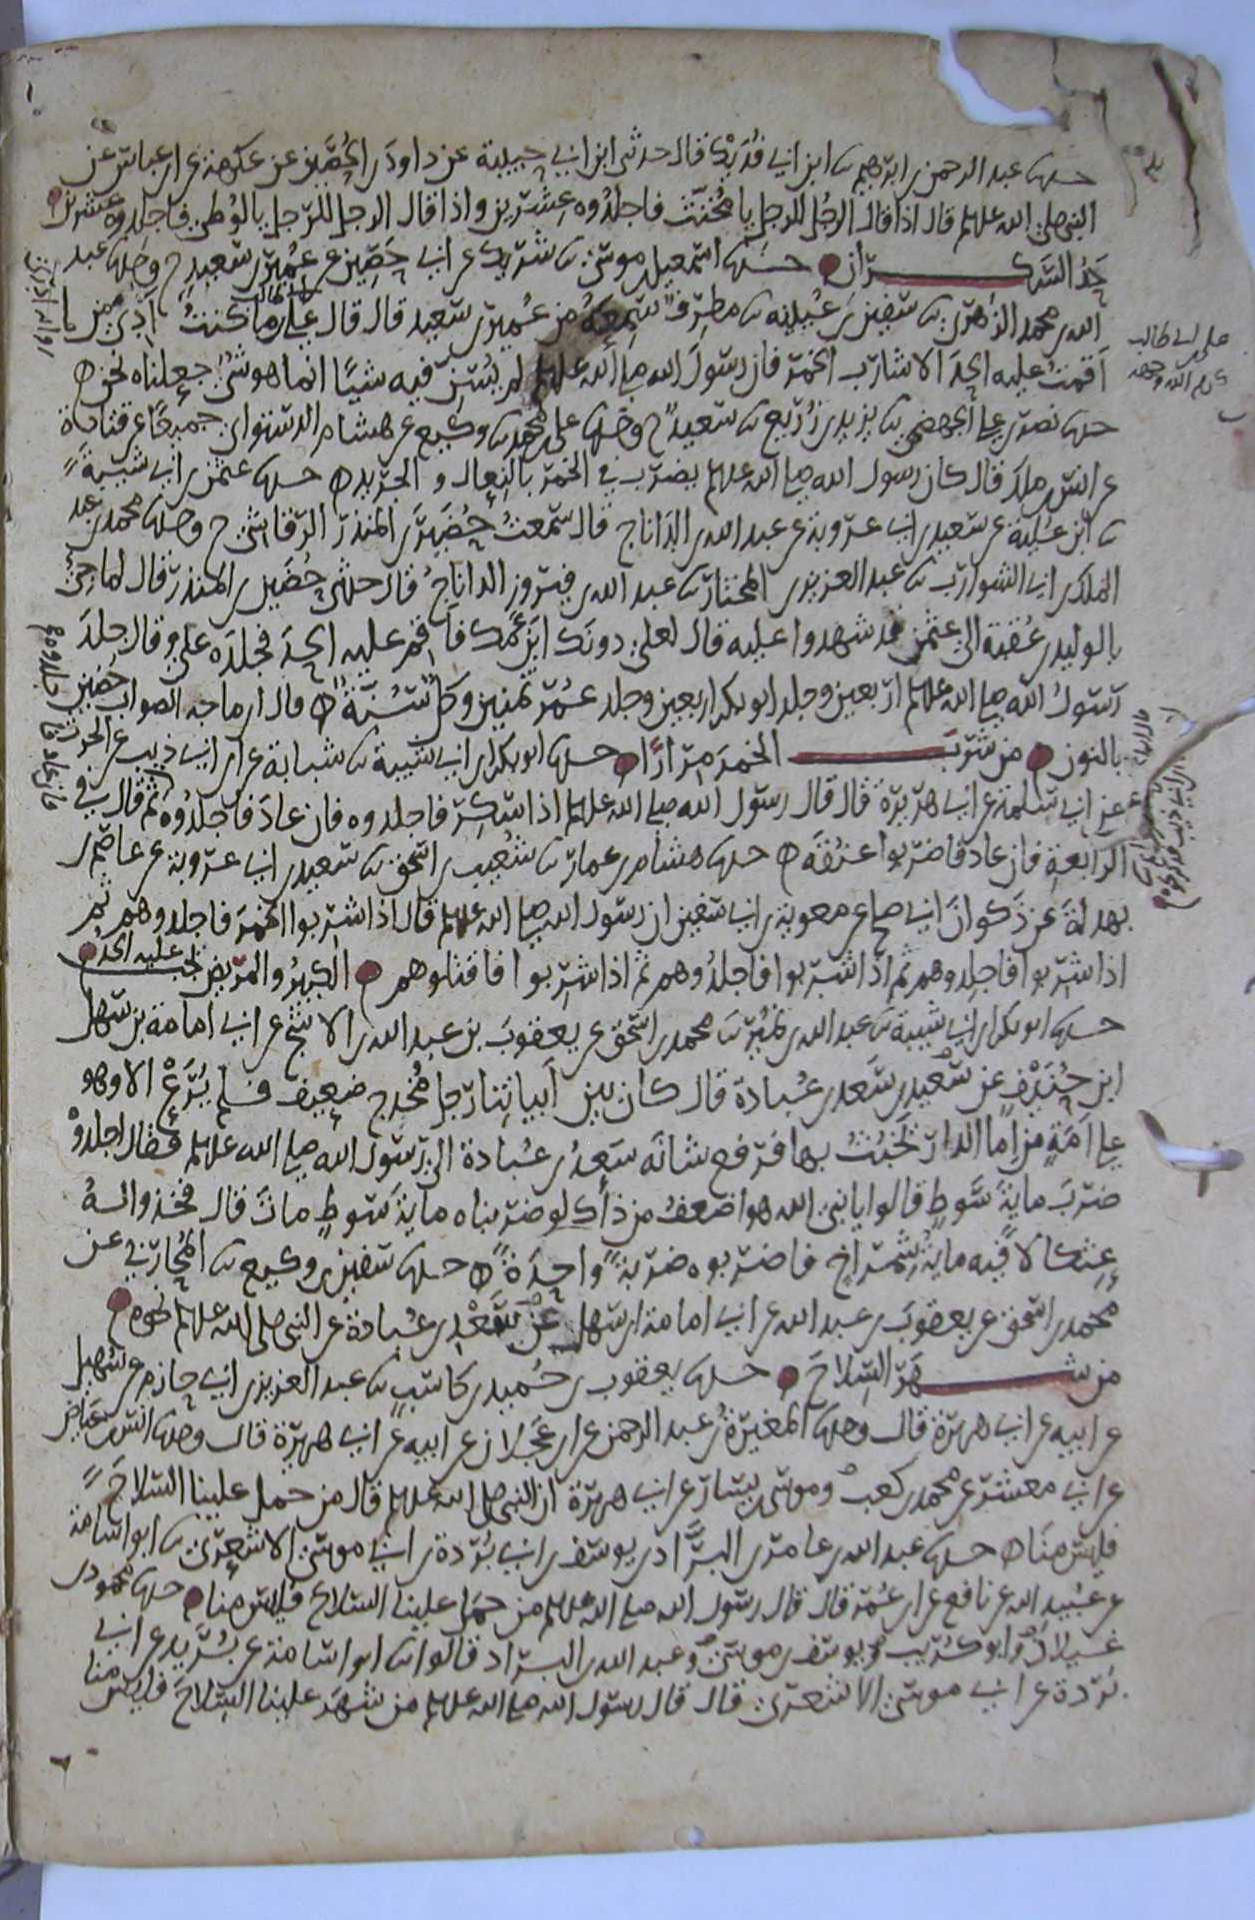 حدثنا عبد الرحمن بن ابرهيم ثنا ابن ابي فديك قال حدثني ابن ابي حبيبة عن داود بن الحصين عن عكرمة عن ابن عباس عن
النبي صلى الله عليه وسلم قال اذا قال الرجل للرجل يا مخنث فاجلدوه عشرين واذا قال الرجل للرجل يا لوطي فاجلدوه عشرين
حد السكران حدثنا اسمعيل بن موسى ثنا شريك عن ابي حصين عن عمير بن سعيد ح وحدثنا عبد
الله بن محمد الزهري ثنا سفين بن عيينه ثنا مطرف سمعته من عمير بن سعيد قال قال علي بن ابي طالب ما كنت أدي من
أقمت عليه الحد الا شارب الخمر فان رسول الله صلى الله عليه وسلم لم يسن فيه شيئا انما هو شئ جعلناه نحن
حدثنا نصر بن علي الجهضمي ثنا يزيد بن زريع ثنا سعيد ح وحدثنا علي بن محمد ثنا وكيع عن هشام الدستوائي جميعا عن قتادة
عن انس بن ملك قال كان رسول الله صلى الله عليه وسلم يضرب في الخمر بالنعال والجريد حدثنا عثمن بن ابي شيبة
ثنا ابن علية عن سعيد بن ابي عروبة عن عبد الله بن الداناج قال سمعت حضين بن المنذر الرقاشي ح وحدثنا محمد بن عبد
الملك بن ابي الشوارب ثنا عبد العزيز بن المختار ثنا عبد الله بن فيروز الداناج قال حدثني حضين بن المنذر قال لما جئ
بالوليد بن عقبة الى عثمن قد شهدوا عليه قال لعلي دونك ابن عمك فأقم عليه الحد فجلده علي وقال جلد
رسول الله صلى الله عليه وسلم اربعين وجلد ابو بكر اربعين وجلد عمر ثمنين وكل سنة قال ابن ماجه الصواب حضين
بالنون من شرب الخمر مرارا حدثنا ابو بكر بن ابي شيبة ثنا شبابة عن ابن ابي ذيب عن الحرث
عن ابي سلمة عن ابي هريرة قال قال رسول الله صلى الله عليه وسلم اذا سكر فاجلدوه فان عاد فاجلدوه ثم قال في
الرابعة فان عاد فاضربوا عنقه حدثنا هشام بن عمار ثنا شعيب بن اسحق ثنا سعيد بن ابي عروبة عن عاصم بن
بهدلة عن ذكوان ابي صالح عن معوية بن ابي سفين ان رسول الله صلى الله عليه وسلم قال اذا شربوا الخمر فاجلدوهم ثم
اذا شربوا فاجلدوهم ثم اذا شربوا فاجلدوهم ثم اذا شربوا فاقتلوهم الكبير والمريض يجب عليه الحد
حدثنا ابو بكر بن ابي شيبة ثنا عبد الله بن نمير ثنا محمد بن اسحق عن يعقوب بن عبد الله بن الاشج عن ابي امامة بن سهل
ابن حنيف عن سعيد بن سعد بن عبادة قال كان بين أبياتنا رجل مخدج ضعيف فلم يرع الا وهو
على أمة من اما الدار يخبث بها فرفع شانه سعد بن عبادة الى رسول الله صلى الله عليه وسلم فقال اجلدوه
ضرب ماية سوط قالوا يا نبي الله هو اضعف من ذاك لو ضربناه ماية سوط مات قال فخذوا له
عثكالا فيه ماية شمراخ فاضربوه ضربة واحدة حدثنا سفين بن وكيع ثنا المحاربي عن
محمد بن اسحق عن يعقوب بن عبد الله عن ابي امامة بن سهل عن سعد بن عبادة عن النبي صلى الله عليه وسلم نحوه
من شهر السلاح حدثنا يعقوب بن حميد بن كاسب ثنا عبد العزيز بن ابي حازم عن سهيل
عن ابيه عن ابي هريرة قال وحدثنا المغيرة بن عبد الرحمن عن ابن عجلان عن ابيه عن ابي هريرة قال وحدثنا انس بن عياض
عن ابي معشر عن محمد بن كعب وموسى بن يسار عن ابي هريرة ان النبي صلى الله عليه وسلم قال من حمل علينا السلاح
فليس منا حدثنا عبد الله بن عامر بن البراد بن يوسف بن ابي بردة بن ابي موسى الاشعري ثنا ابو اسامة
عن عبيد الله عن نافع عن ابن عمر قال قال رسول الله صلى الله عليه وسلم من حمل علينا السلاح فليس منا حدثنا محمود بن
غيلان وابو كريب ويوسف بن موسى وعبد الله بن البراد قالوا ثنا ابو اسامة عن بريد عن ابي
بردة عن ابي موسى الاشعري قال قال رسول الله صلى الله عليه وسلم من شهر علينا السلاح فليس منا
علي بن ابي طالب
كرم الله وجهه
فان عاد فاجلدوه